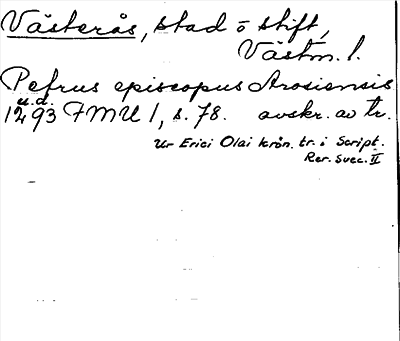 Västerås, stad o stift,
Västm. l.
Petrus episcopus Arosiensis
u.d.
1293 FMU 1, s. 78. avskr. av tr.
Ur Erici Olai krön. tr. i Script.
Rer. Svec. II